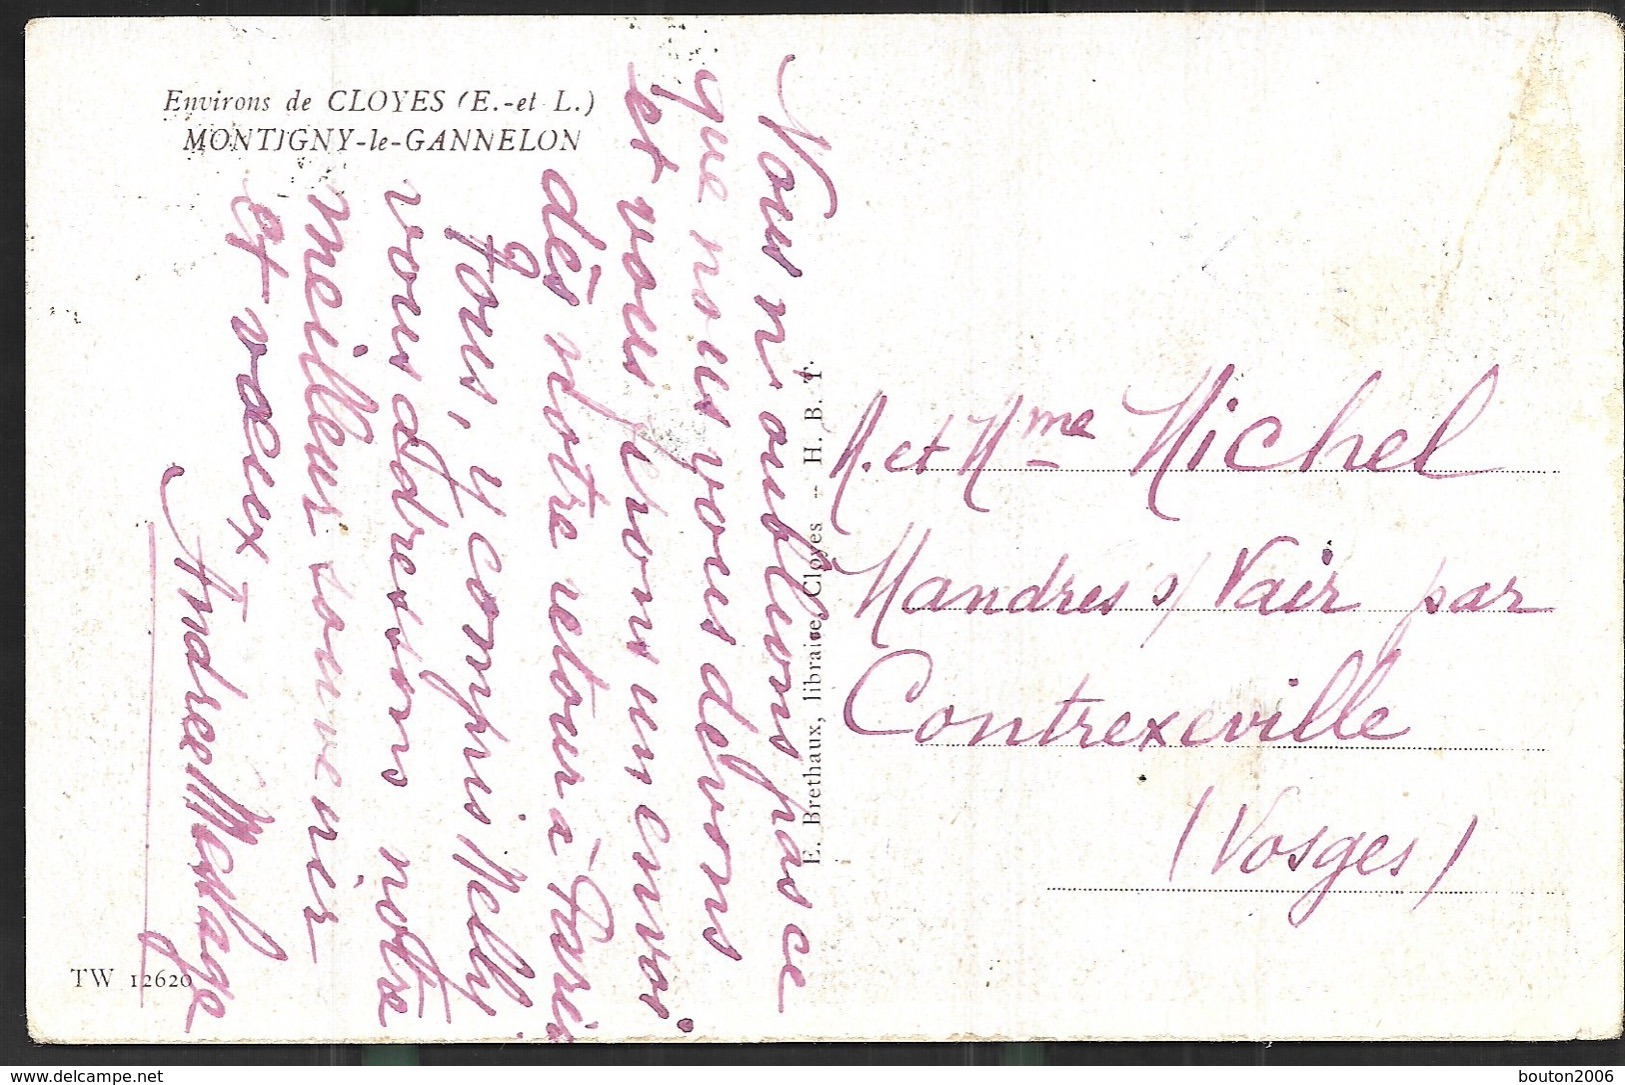 Environs de CLOYES (E.-et L.)
MONTIGNY-le-GANNELON
Nous n'oublions pas ce
que nous vous devons
et vous ferons un envoi
dès notre retour à Paris
Tous, y compris Nelly
vous adressons notre
meilleur souvenir
et vœux,
Andrée
E. Brethaux, libraire, Cloyes -- H. B. T
M. et Mme Michel
Mandres s/ Vair par
Contrexeville
(Vosges)
TW 12620
https://www.delcampe.net
bouton2006